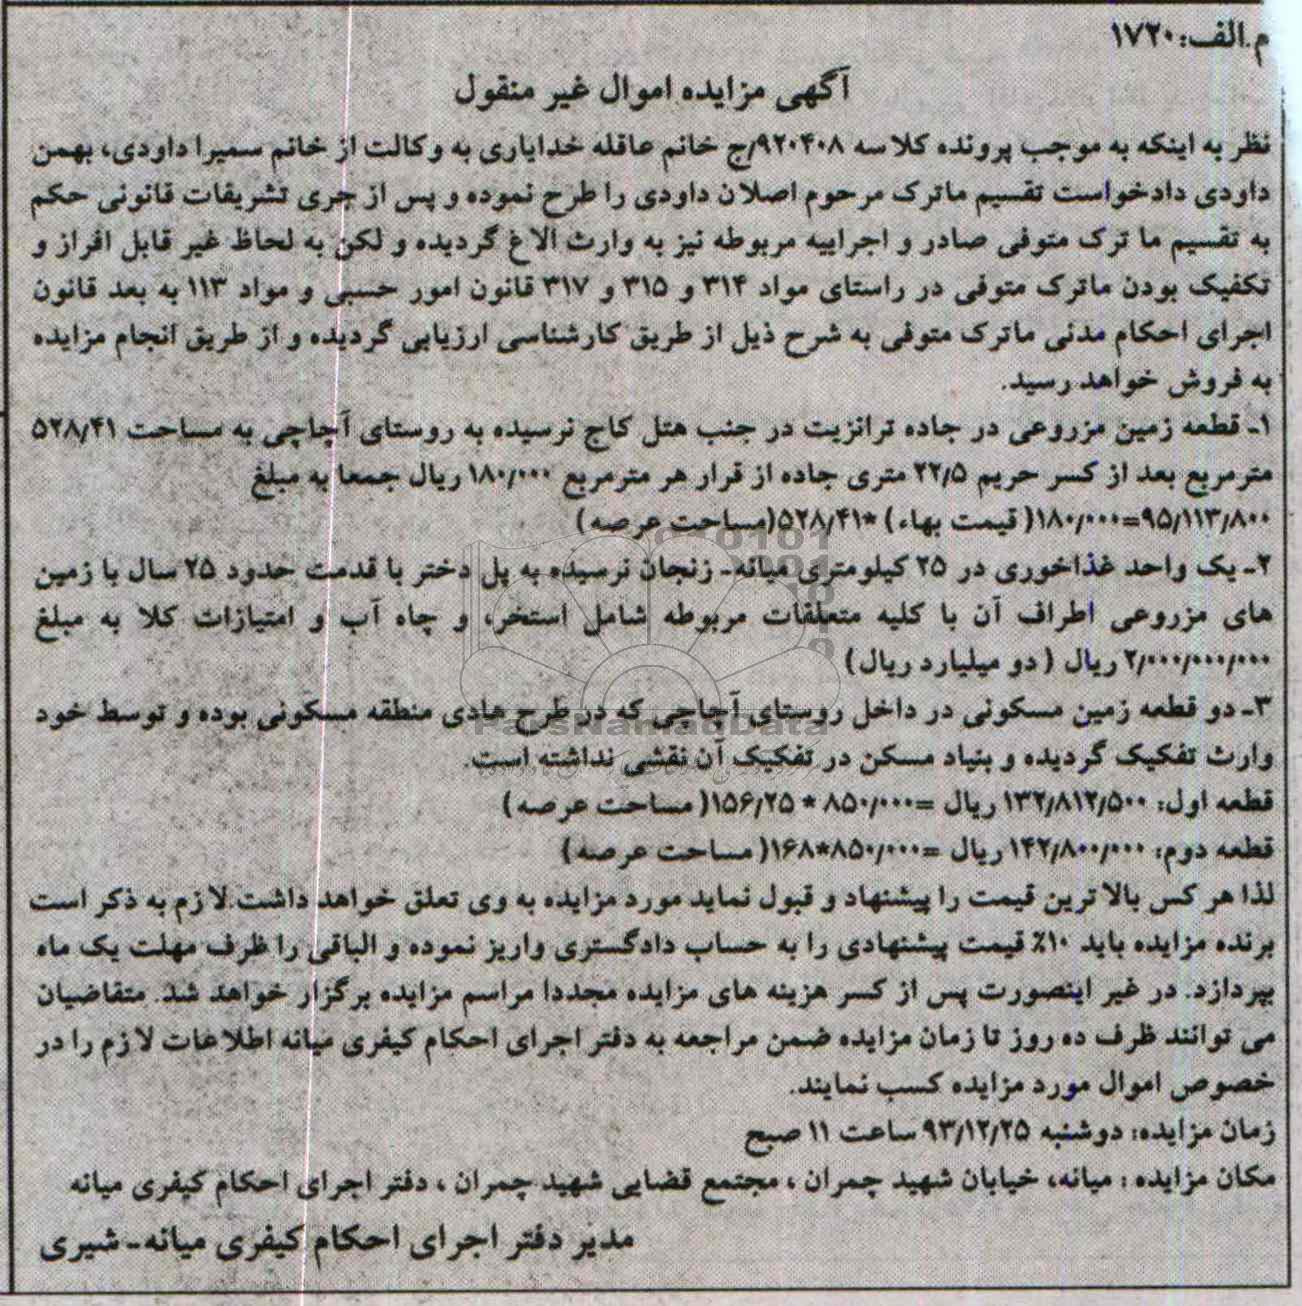 م.الف: ۱۷۲۰
آگهی مزایده اموال غیر منقول
نظر به اینکه به موجب پرونده کلاسه ۹۲۰۴۰۸/ج خانم عاقله خدایاری به وکالت از خانم سمیرا داودی، بهمن
داودی دادخواست تقسیم ماترک مرحوم اصلان داودی را طرح نموده و پس از جری تشریفات قانونی حکم
به تقسیم ما ترک متوفی صادر و اجراییه مربوطه نیز به وارث الاغ گردیده و لکن به لحاظ غیر قابل افراز و
تکفیک بودن ماترک متوفی در راستای مواد ۳۱۴ و ۳۱۵ و ۳۱۷ قانون امور حسبی و مواد ۱۱۳ به بعد قانون
اجرای احکام مدنی ماترک متوفی به شرح ذیل از طریق کارشناسی ارزیابی گردیده و از طریق انجام مزایده
به فروش خواهد رسید.
۱ـ قطعه زمین مزروعی در جاده ترانزیت در جنب هتل کاج نرسیده به روستای آچاچی به مساحت ۵۲۸/۴۱
مترمربع بعد از کسر حریم ۲۲/۵ متری جاده از قرار هر مترمربع ۱۸۰/۰۰۰ ریال جمعا به مبلغ
۹۵/۱۱۳/۸۰۰=۱۸۰/۰۰۰( قیمت بهاء) *۵۲۸/۴۱(مساحت عرصه)
۲ـ یک واحد غذاخوری در ۲۵ کیلومتری میانه ـ زنجان نرسیده به پل دختر با قدمت حدود ۲۵ سال با زمین
های مزروعی اطراف آن با کلیه متعلقات مربوطه شامل استخر، و چاه آب و امتیازات کلا به مبلغ
۲/۰۰۰/۰۰۰/۰۰۰ ریال ( دو میلیارد ریال)
۳ـ دو قطعه زمین مسکونی در داخل روستای آچاچی که در طرح هادی منطقه مسکونی بوده و توسط خود
وارث تفکیک گردیده و بنیاد مسکن در تفکیک آن نقشی نداشته است.
قطعه اول: ۱۳۲/۸۱۲/۵۰۰ ریال =۸۵۰/۰۰۰ * ۱۵۶/۲۵( مساحت عرصه)
قطعه دوم: ۱۴۲/۸۰۰/۰۰۰ ریال =۸۵۰/۰۰۰*۱۶۸( مساحت عرصه)
لذا هر کس بالا ترین قیمت را پیشنهاد و قبول نماید مورد مزایده به وی تعلق خواهد داشت.لا زم به ذکر است
برنده مزایده باید ۱۰٪ قیمت پیشنهادی را به حساب دادگستری واریز نموده و الباقی را ظرف مهلت یک ماه
بپردازد. در غیر اینصورت پس از کسر هزینه های مزایده مجددا مراسم مزایده برگزار خواهد شد. متقاضیان
می توانند ظرف ده روز تا زمان مزایده ضمن مراجعه به دفتر اجرای احکام کیفری میانه اطلاعات لازم را در
خصوص اموال مورد مزایده کسب نمایند.
زمان مزایده: دوشنبه ۹۳/۱۲/۲۵ ساعت ۱۱ صبح
مکان مزایده : میانه، خیابان شهید چمران ، مجتمع قضایی شهید چمران ، دفتر اجرای احکام کیفری میانه
مدیر دفتر اجرای احکام کیفری میانه ـ شیری
ParsNamadData